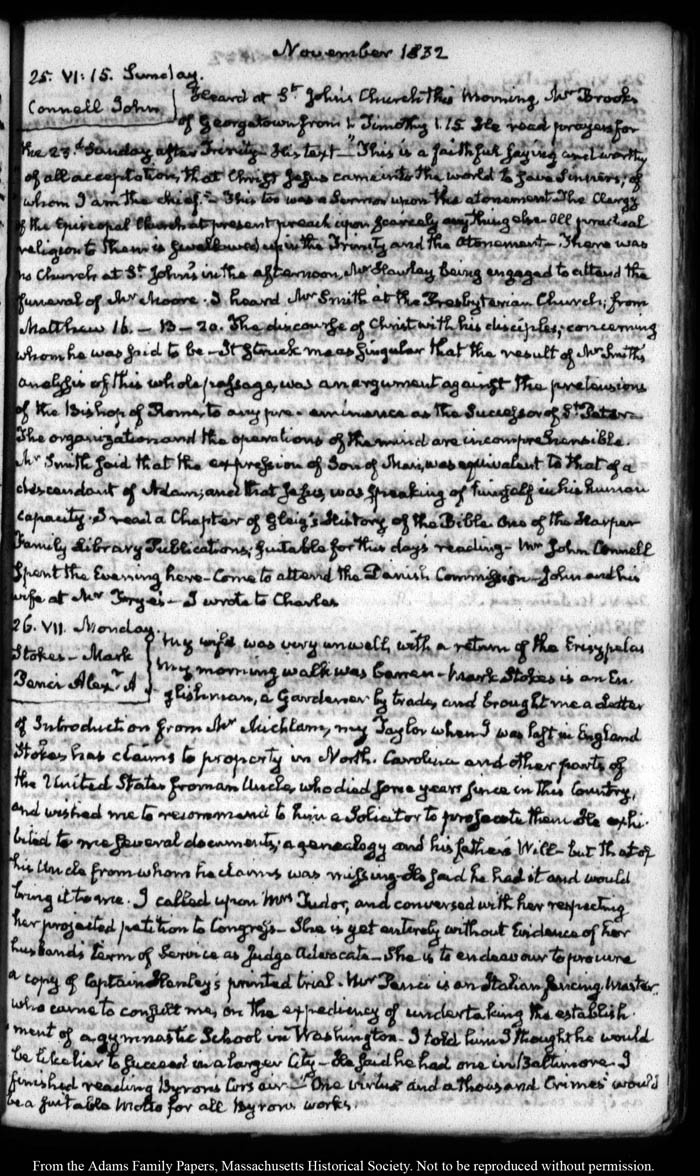 November 1832
25. VI:15. Sunday.
Connell John
Heard at St. John's Church this Morning, Mr Brooke
of Georgetown from 1. Timothy 1.15 He read prayers for
the 23d. Sunday after Trinity — His text — "This is a faithful saying and worthy
of all acceptation, that Christ Jesus came into the world to save Sinners; of
whom I am the chief." — This too was a Sermon upon the atonement. The Clergy
of the Episcopal Church at present preach upon scarcely any thing else. All practical
religion to them is swallowed up in the Trinity and the Atonement — There was
no Church at St. John's in the afternoon, Mr Hawley being engaged to attend the
funeral of Mr Moore. I heard Mr Smith at the Presbyterian Church; from
Matthew 16. — 13 — 20. The discourse of Christ with his disciples, concerning
whom he was said to be — It struck me as singular that the result of Mr Smith's
analysis of this whole passage, was an argument against the pretensions
of the Bishop of Rome, to any pre-eminence as the Successor of St. Peter —
The organization and the operations of the mind are incomprehensible.
Mr Smith said that the expression of Son of Man, was equivalent to that of a
descendant of Adam; and that Jesus, was speaking of himself in his human
capacity. I read a Chapter of Gleig's History of the Bible One of the Harper
Family Library Publications; suitable for this day's reading — Mr John Connell
spent the Evening here — Come to attend the Danish Commission — John and his
wife at Mr Frye's — I wrote to Charles
26. VII. Monday.
Stokes — Mark
Penci Alexr. A
My wife was very unwell, with a return of the Erisypelas
My morning walk was barren — Mark Stokes is an En-
glishman, a Gardener by trade, and brought me a Letter
of Introduction from Mr Nicklam, my Taylor when I was last in England
Stokes has claims to property in North-Carolina and other parts of
the United States from an Uncle, who died some years since in this Country,
and wished me to recommend to him a Solicitor to prosecute them He exhi-
bited to me several documents; a genealogy and his father's Will — but that of
his Uncle from whom he claims was missing — He said he had it and would
bring it to me. I called upon Mrs Tudor, and conversed with her respecting
her projected petition to Congress — She is yet entirely without Evidence of her
husband's term of Service as Judge Advocate — She is to endeavour to procure
a copy of Captain Henley's printed trial. Mr Penci is an Italian fencing Master
who came to consult me, on the expediency of undertaking the establish-
ment of a gymnastic School in Washington — I told him I thought he would
be likelier to succeed in a larger City — He said he had one in Baltimore. I
finished reading Byrons Corsair — "One virtue and a thousand Crimes" would
be a suitable Motto for all Byrons works.
From the Adams Family Papers, Massachusetts Historical Society. Not to be reproduced without permission.